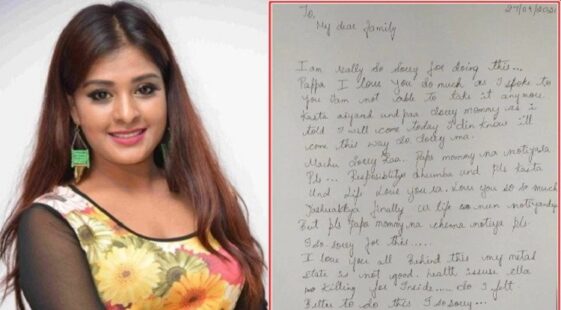 To,
27/09/2021
My dear family
I am really so sorry for doing this...
Pappa I love you so much as I spoke to
you I am not able to take it anymore.
Kasta aiyand und paa. Sorry mommy as i
told I will come today I din know i'll
come this way. So Sorry ma.
Machu Sorry Kaa. Papa mommy na notiyada
Pls... Responsibility dhumba und pls kasta
Und life. Love you ra. Love you so so much
finally life nun
But pls Papa mommy na chema notiye pls
I so sorry for this.....
I love you all Behind this my metal
state is not good. health issuse ella
so killing for Inside..... So I felt
Better to do this I so Sorry...